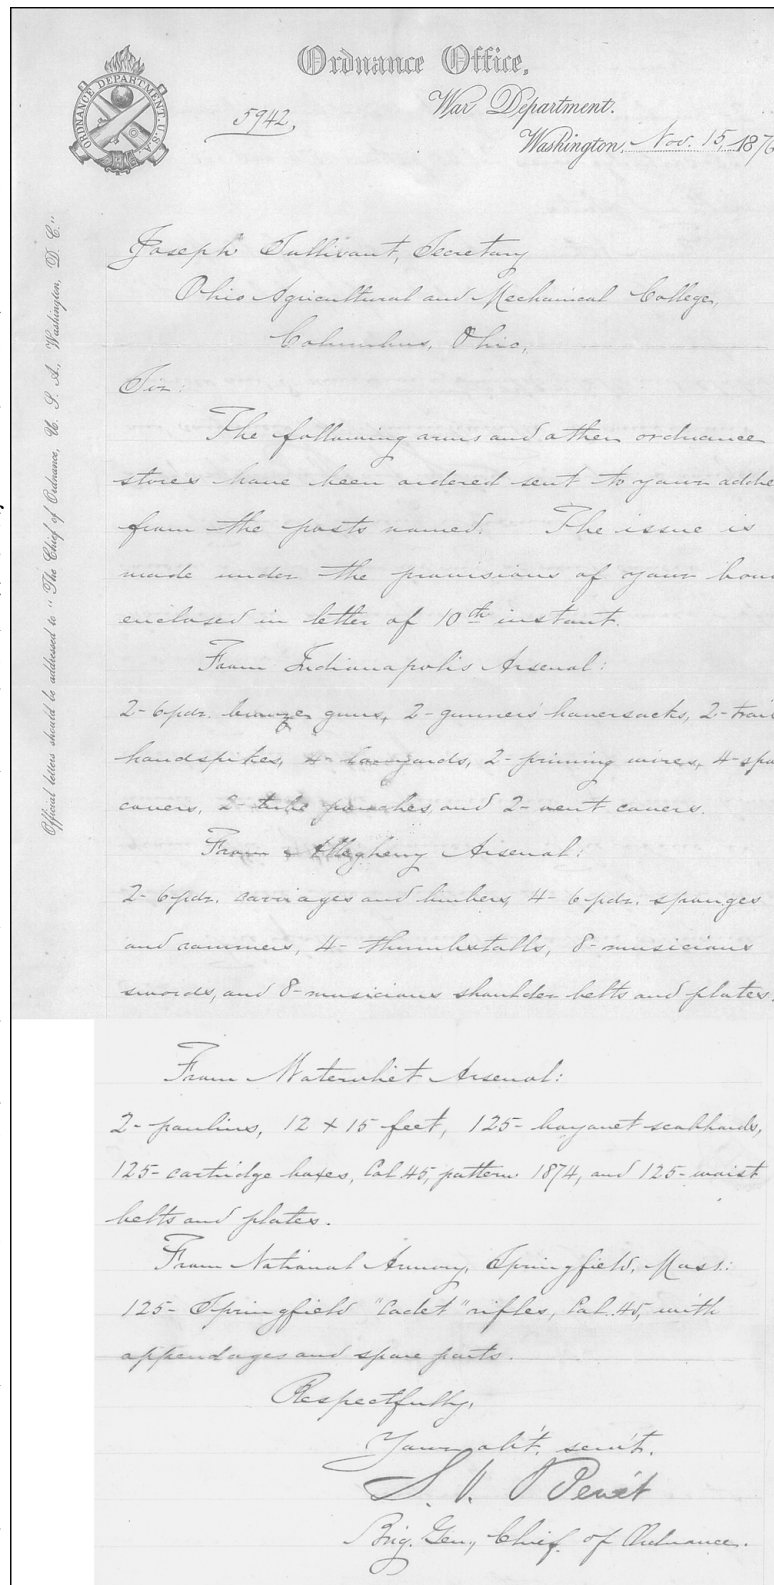 Ordnance Office,
ORDNANCE DEPARTMENT. U.S.A.
War Department.
5942,
Washington, Nov. 15, 187
Joseph Sullivant, Secretary
Ohio Agricultural and Mechanical College,
Columbus, Ohio,
Sir:
The following arms and other ordnance
stores have been ordered sent to your addre
from the posts named. The issue is
made under the provisions of your bon
enclosed in letter of 10th instant.
From Indianapolis Arsenal:
2- 6 pdr. bronze guns, 2- gunner's haversacks, 2- trai
handspikes, 4- lanyards, 2- priming wires, 4- spo
covers, 2- tube pouches, and 2- vent covers.
From Allegheny Arsenal:
2- 6 pdr. carriages and limbers, 4- 6 pdr. sponges
and rammers, 4- thumbstalls, 8- musicians
swords, and 8- musicians shoulder belts and plates.
From Watervliet Arsenal:
2- paulins, 12 x 15 feet, 125- bayonet scabbards,
125- cartridge boxes, Cal 45, pattern 1874, and 125- waist
belts and plates.
From National Armory, Springfield, Mass:
125- Springfield "Cadet" rifles, Cal. 45, with
appendages and spare parts.
Respectfully,
Your ob't. serv't.
S. V. Benét
Brig. Gen., Chief of Ordnance.
Official letters should be addressed to "The Chief of Ordnance, U. S. A., Washington, D. C."